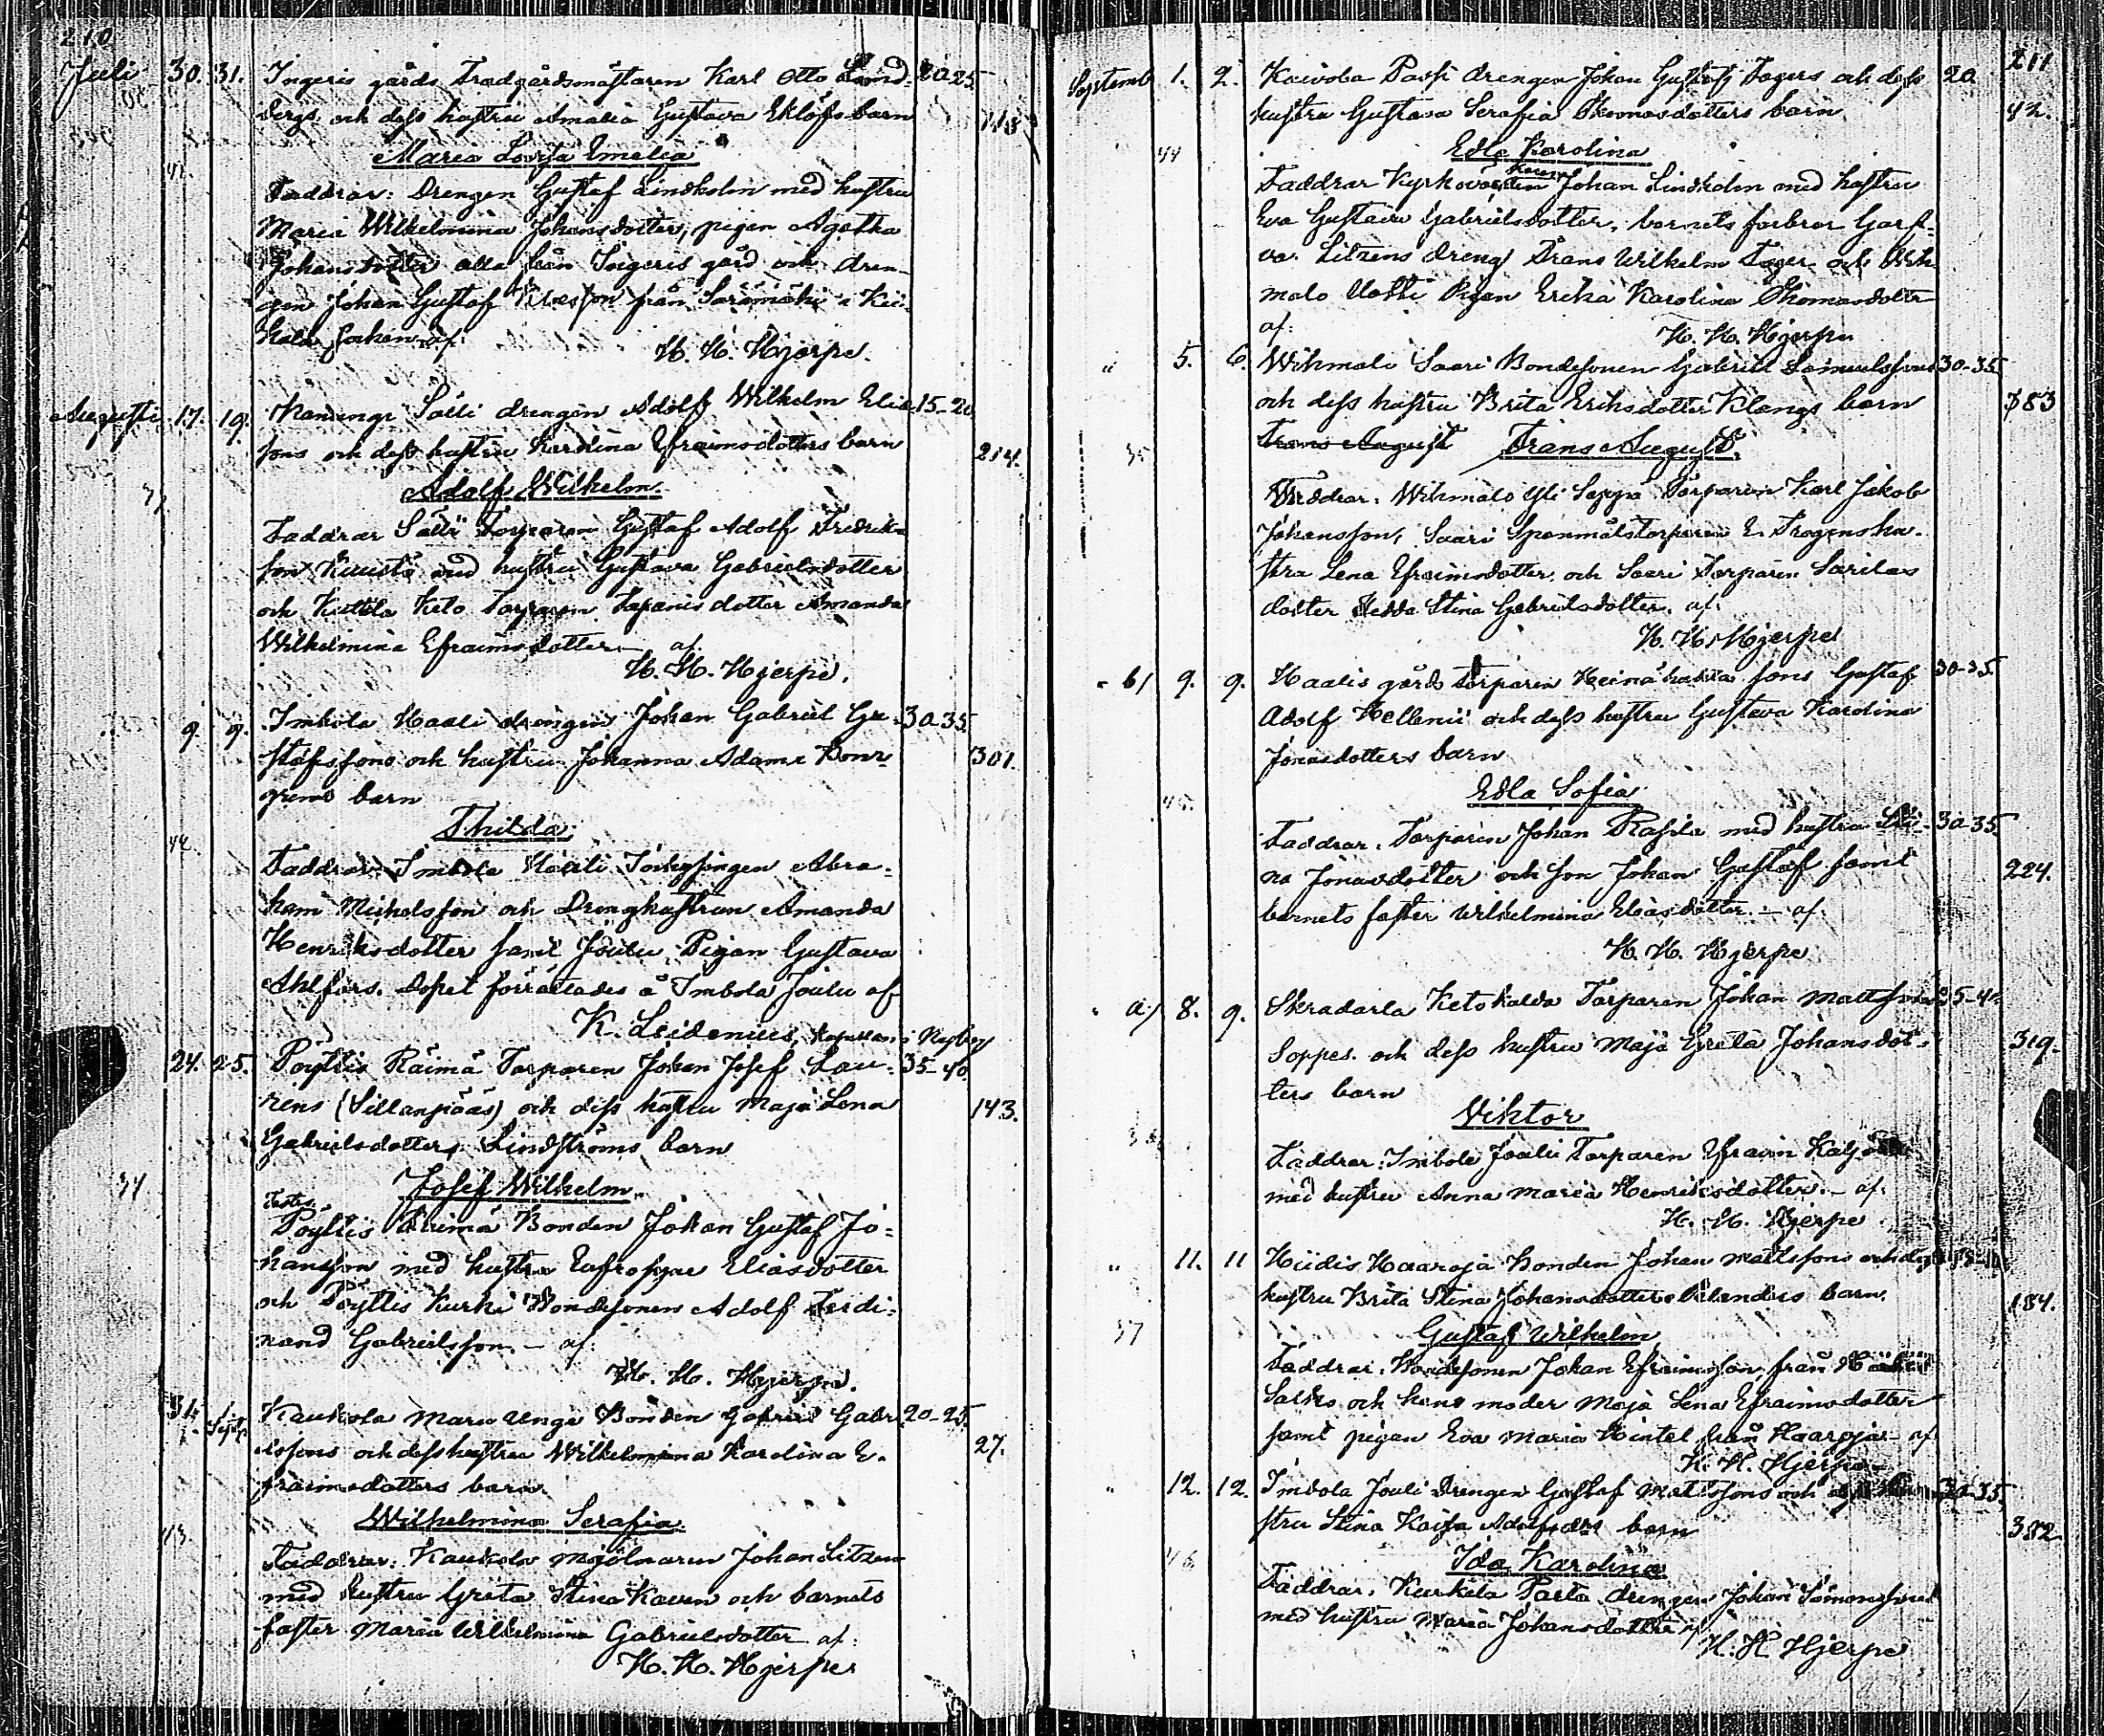 210
Juli 30. 31. Ingeris gårds Trädgårdsmästaren Karl Otto Lind- 20-25
bergs och dess hustru Amalia Gustava Eklöfs barn 113
Maria Lovisa Emelia
42.
Faddrar: Drengen Gustaf Lindholm med hustru
Maria Wilhelmina Johansdotter, pigan Agatha
Johansdotter alla från Ingeris gård och dren-
gen Johan Gustaf från i Kii-
kala socken af:
H. H. Hjerpe.
Augusti 17. 19. Sälli drengen Adolf Wilhelm Elias 15-20
sons och dess hustru Karolina Efraimsdotters barn 214.
Adolf Wilhelm.
37
Faddrar Sälli Torparen Gustaf Adolf Fredriks
son med hustru Gustava Gabrielsdotter
och Kuttila Keto Torparen dotter Amanda
Wilhelmina Efraimsdotter — af.
H. H. Hjerpe.
9. 9. Imbola Haali drengen Johan Gabriel Gu- 30-35
stafssons och hustru Johanna Adams 301.
grens barn
Thilda.
44.
Faddrar: Imbola Haali Abra-
ham Michelsson och Drenghustrun Amanda
Henriksdotter samt Joulu Pigan Gustava
Ahlfors. Dopet förrättades å Imbola Joulu af
K. Leidenius, Kapellan i Nykyrko
24. 25. Pöyttis Räimä Torparen Johan Josef Lau- 35-40.
rens (Sillanpääs) och dess hustru Maja Lena 143.
Gabrielsdotter Lindströms barn
34 Josef Wilhelm.
Test.
Pöyttis Räimä Bonden Johan Gustaf Jo-
hansson med hustru Eufrosyne Eliasdotter
och Pöyttis Kurki Bondesonen Adolf Ferdi-
nand Gabrielsson. — af:
H. H. Hjerpe.
31. 1 Sept. Kaukola Maru Unge Bonden Gabriel Gabri 20-25.
elssons och dess hustru Wilhelmina Karolina E- 27.
fraimsdotters barn
Wilhelmina Serafia.
43.
Faddrar: Kaukola Mjölnaren Johan Litzen
med hustru Greta Stina Kaven och barnets
faster Maria Wilhelmina Gabrielsdotter af:
H. H. Hjerpe
211
Septemb 1. 2. Koivola Paski drengen Johan Gustaf Fagers och dess 20
hustru Gustava Serafia Thomasdotters barn 42.
44 Edla Karolina
Faddrar Kyrkovärden Johan Lindholm med hustru
Eva Gustava Gabrielsdotter, barnets farbror
Litzens dreng Frans Wilhelm Fager och Wih-
malo Uotti Pigan Erika Karolina Thomasdotter
af:
H. H. Hjerpe
" 5. 6. Wihmalo Saari Bondesonen Gabriel Samuelssons 30-35
och dess hustru Brita Eriksdotter Klangs barn 383
Frans August Frans August.
Faddrar: Wihmalo Yli Seppä Torparen Karl Jakob
Johansson, Saari Spanmålstorparen E. Trogens hu-
stru Lena Efraimsdotter och Saari Torparen Sarilas
dotter Hedda Stina Gabrielsdotter. af:
H. H. Hjerpe
" b/ 9. 9. Haalis gårds torparen sons Gustaf 30-35.
Adolf Hellenii och dess hustru Gustava Karolina
Jonasdotters barn
Edla Sofia
45.
Faddrar. Torparen Johan Rasila med hustru Sti- 30-35.
na Jonasdotter och son Johan Gustaf samt 224.
barnets faster Wilhelmina Eliasdotter. — af:
H. H. Hjerpe
" a/ 8. 9. Skradarla Ketohalda Torparen Johan Mattssons
Soppes och dess hustru Maja Greta Johansdot- 319.
ters barn
Viktor
Faddrar: Imbola Joulu Torparen Efraim
med hustru Anna Maria Henriksdotter. — af:
H. H. Hjerpe
" 11. 11 Hiidis Haaroja Bonden Johan Mattssons och dess
hustru Brita Stina Johansdotter barn 184.
37 Gustaf Wilhelm
Faddrar. Bondesonen Johan Efraimsson från
och hans moder Maja Lena Efraimsdotter
samt pigan Eva Maria Hintel från Haaroja — af
H. H. Hjerpe
" 12. 12. Imbola Jouli Drengen Gustaf Mattssons och 30-35.
stru Stina Kaisa Adolfsdrs barn 382.
46 Ida Karolina
Faddrar. Kurkela Parta drengen Johan Simonsson
med hustru Maria Johansdotter af
H. H. Hjerpe